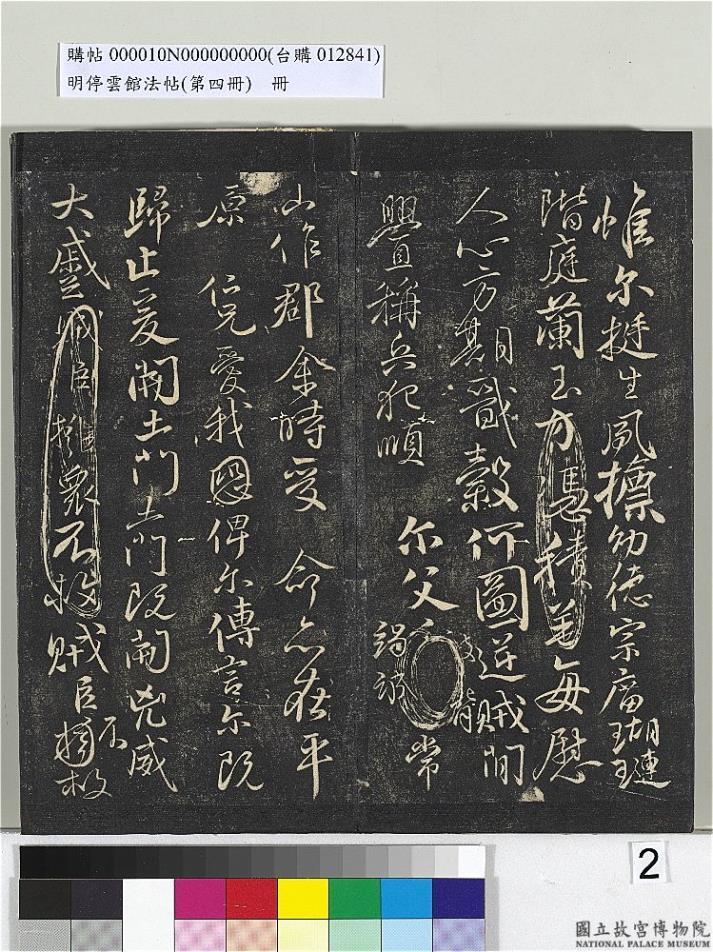 購帖 000010N000000000(台購 012841)
明停雲館法帖(第四冊)　冊
惟爾挺生夙摽幼德宗廟瑚璉
階庭蘭玉方憑積善每慰
人心方期戩穀何圖逆賊間
釁稱兵犯順 爾父竭誠常
山作郡余時受 命亦在平
原 仁兄愛我俾爾傳言爾既
歸止爰開土門土門既開凶威
大蹙賊臣擁眾不救賊臣不擁救
2
國立故宮博物院
NATIONAL PALACE MUSEUM